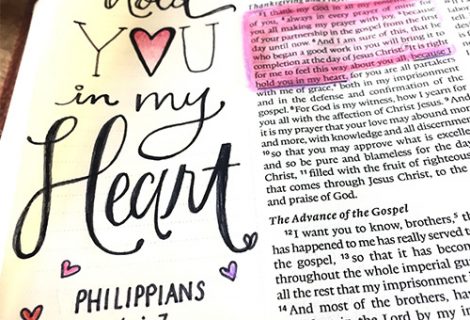 hold
YOU
in my
Heart
PHILIPPIANS
1:7
Thanksgiving and
3 I thank my God in all my remembrance
of you, 4 always in every prayer of mine for
you all making my prayer with joy, 5 because
of your partnership in the gospel from the first
day until now. 6 And I am sure of this, that he
who began a good work in you will bring it to
completion at the day of Jesus Christ. 7 It is right
for me to feel this way about you all, because I
hold you in my heart, for you are all partakers
with me of grace, both in my imprisonment
and in the defense and confirmation of the
gospel. 8 For God is my witness, how I yearn for
you all with the affection of Christ Jesus. 9 And
it is my prayer that your love may abound more
and more, with knowledge and all discernment,
10 so that you may approve what is excellent,
and so be pure and blameless for the day
Christ, 11 filled with the fruit of righteous
that comes through Jesus Christ, to the
and praise of God.
The Advance of the Gospel
12 I want you to know, brothers, th
has happened to me has really served to
the gospel, 13 so that it has become
throughout the whole imperial gua
all the rest that my imprisonment
14 And most of the brothers, hav
in the Lord by my im